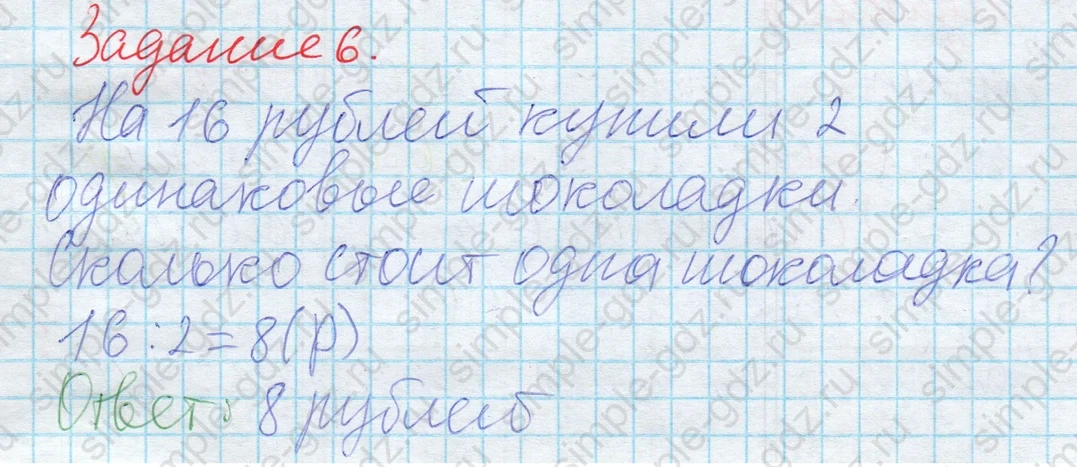 Задание 6.
На 16 рублей купили 2
одинаковые шоколадки.
Сколько стоит одна шоколадка?
16:2=8(р)
Ответ: 8 рублей